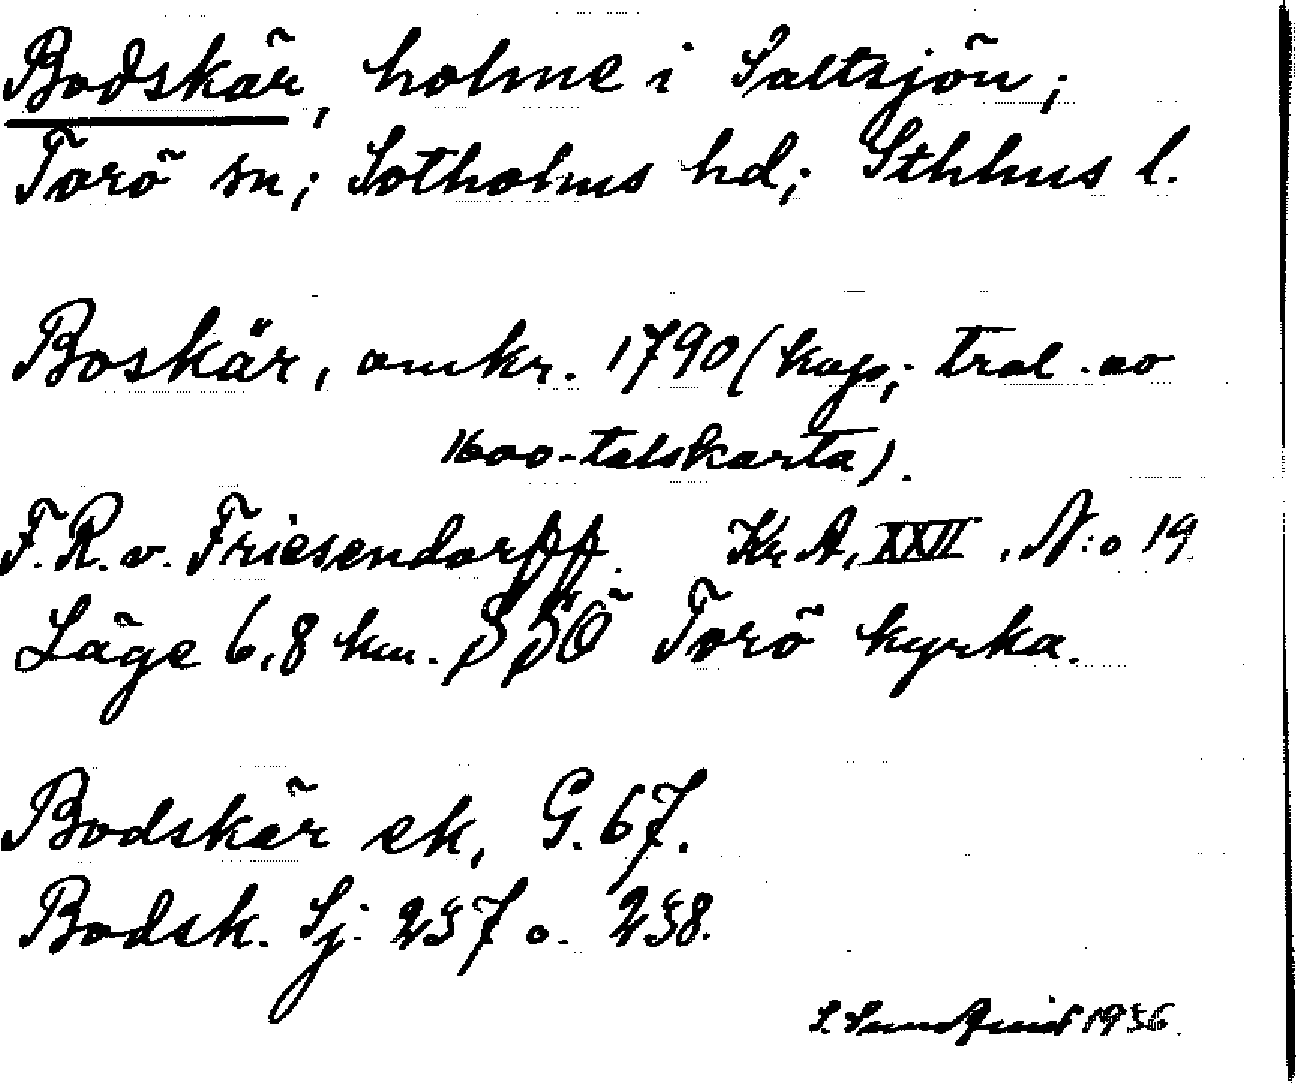 Bodskär, holme i Saltsjön;
Torö sn; Sotholms hd; Sthlms l.
Boskär, omkr. 1790 (kop; trol. av
1600-talskarta).
F. R. v. Friesendorff. Kr. A, XXII, N:o 19
Läge 6,8 km. SSÖ Torö kyrka.
Bodskär ek, G. 67.
Bodsk. Sj: 257 o. 258.
1936